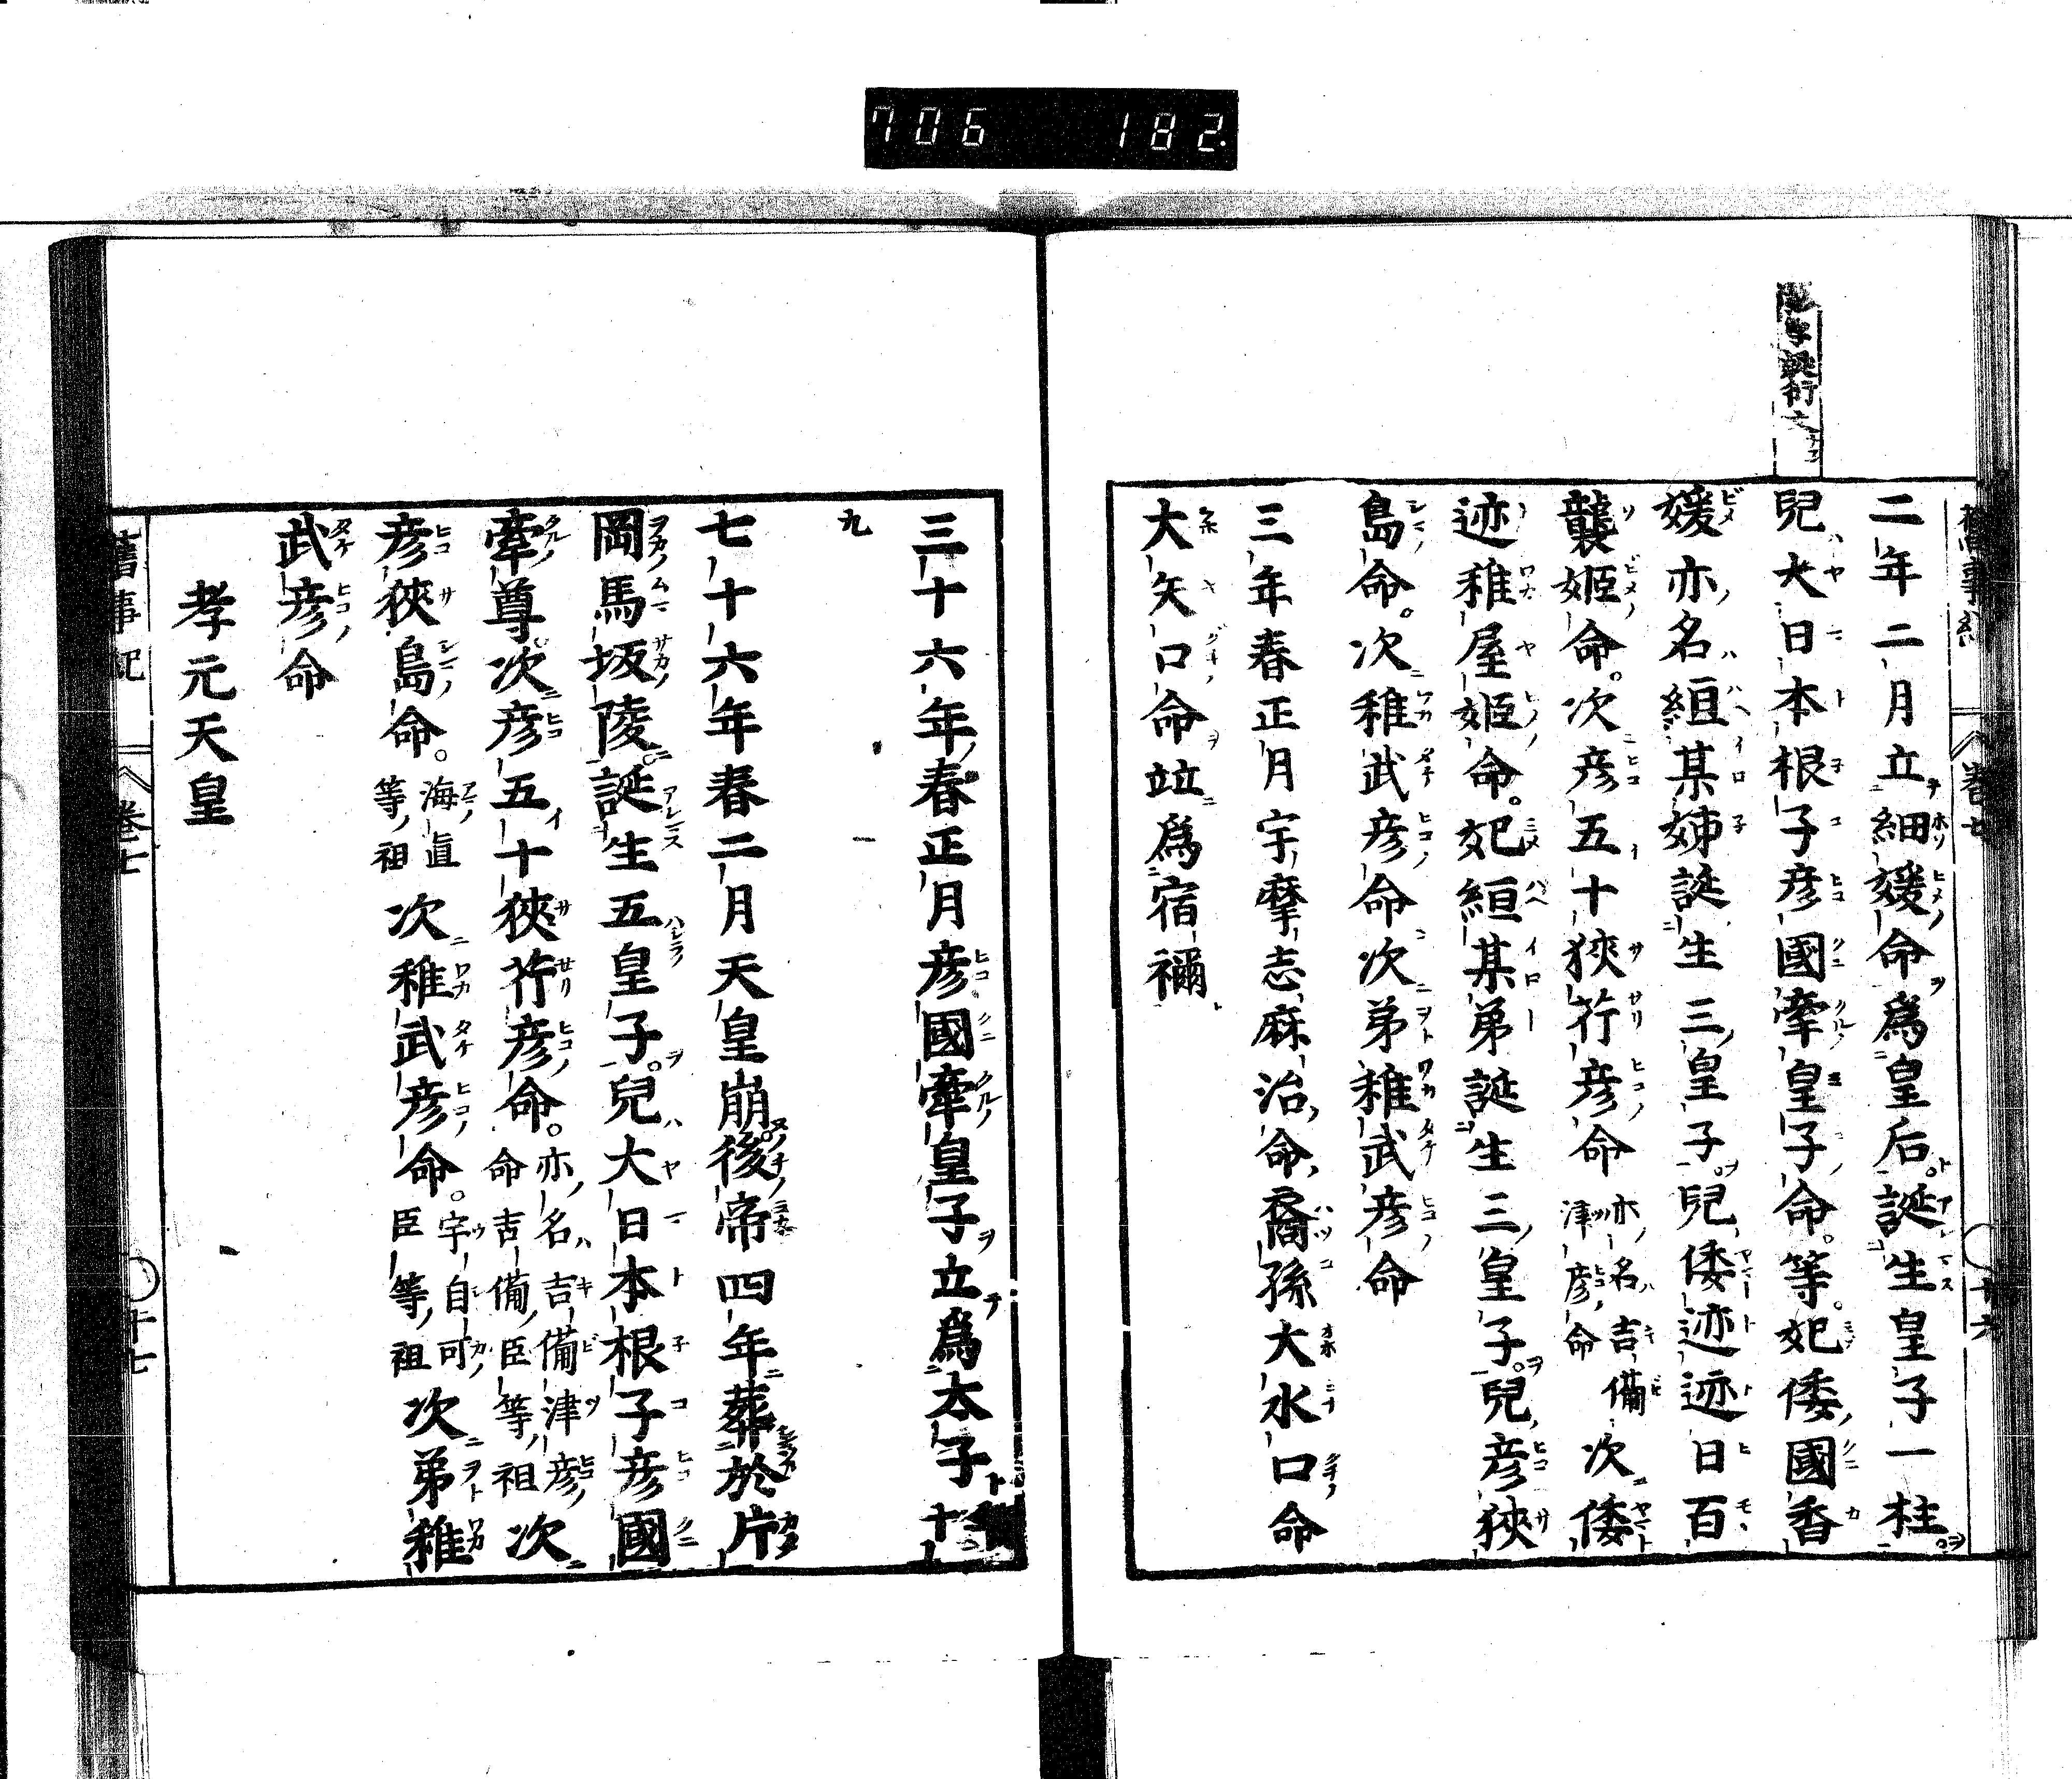 706 182
二年二月立細媛命爲皇后。誕生皇子一柱。
兒大日本根子彦國牽皇子命。等。妃倭國香
媛亦名絙某姉誕生三皇子。兒倭迹迹日百
襲姬命。次彦五十狹芹彦命 亦名吉備津彦命 次倭
迹稚屋姬命。妃絙某弟誕生三皇子。兒彦狹
島命。次稚武彦命次弟稚武彦命
三年春正月宇摩志麻治命裔孫大水口命
大矢口命竝爲宿禰
三十六年春正月彦國牽皇子立爲太子十
九
七十六年春二月天皇崩後帝四年葬於片
岡馬坂陵。誕生五皇子。兒大日本根子彦國
牽尊。次彦五十狹芹彦命。亦名吉備津彦命吉備臣等祖 次
彦狹島命。海直等祖 次稚武彦命。宇自可臣等祖 次弟稚
武彦命
孝元天皇
舊事記 卷七 十七